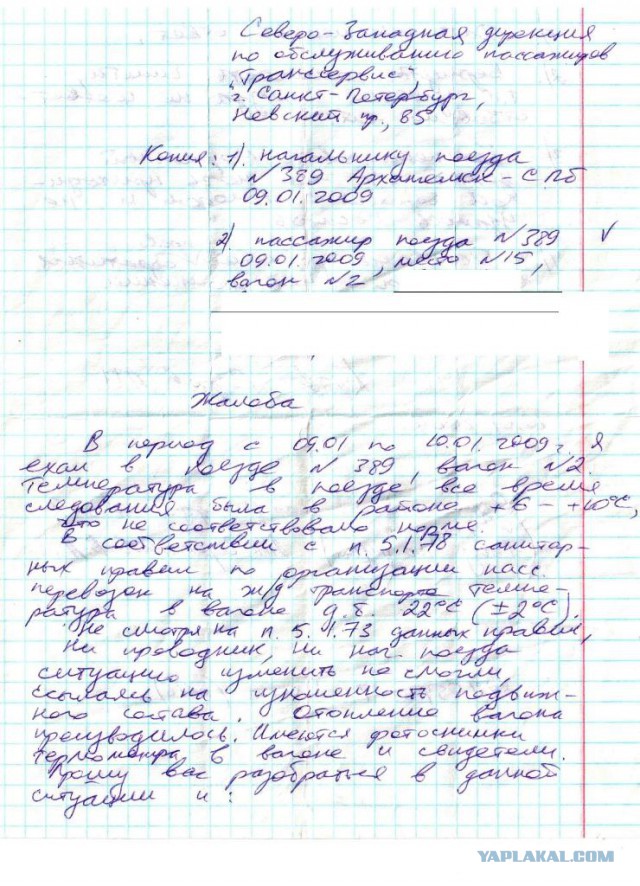 Северо-Западная дирекция
по обслуживанию пассажиров
"Транссервис",
г. Санкт-Петербург,
Невский пр., 85
Копия: 1). начальнику поезда
№ 389 Архангельск - СПб
09.01.2009
2) пассажир поезда № 389 V
09.01.2009, место № 15,
вагон № 2
Жалоба
В период с 09.01 по 10.01.2009г. я
ехал в поезде № 389, вагон № 2.
Температура в поезде все время
следования была в районе +6 - +10°С,
что не соответствовало норме.
В соответствии с п. 5.1.78 санитар-
ных правил по организации пасс.
перевозок на ж/д транспорте темпе-
ратура в вагоне д.б. 22°С (±2°С).
Не смотря на п. 5.4.73 данных правил,
ни проводник, ни нач. поезда
ситуацию изменить не смогли,
ссылаясь на изношенность подвиж-
ного состава. Отопление вагона
производилось. Имеются фотоснимки
термометра в вагоне и свидетели.
Прошу вас разобраться в данной
ситуации и:
YAPLAKAL.COM